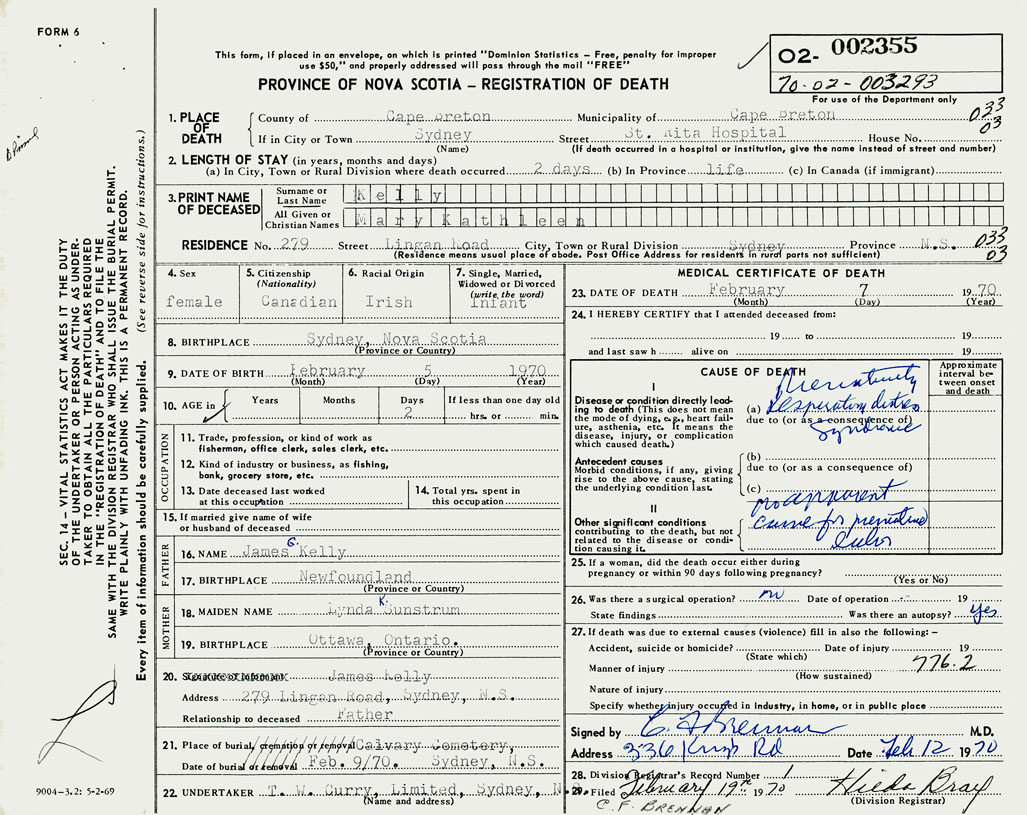 FORM 6
This form, if placed in an envelope, on which is printed "Dominion Statistics – Free, penalty for improper
use $50," and properly addressed will pass through the mail "FREE"
PROVINCE OF NOVA SCOTIA – REGISTRATION OF DEATH
02- 002355
70-02-003293
For use of the Department only
1. PLACE OF DEATH
County of Cape Breton Municipality of Cape Breton 033
If in City or Town Sydney Street St. Rita Hospital House No. 03
(Name) (If death occurred in a hospital or institution, give the name instead of street and number)
2. LENGTH OF STAY (in years, months and days)
(a) In City, Town or Rural Division where death occurred 2 days (b) In Province life (c) In Canada (if immigrant)
3. PRINT NAME OF DECEASED
Surname or Last Name Kelly
All Given or Christian Names Mary Kathleen
RESIDENCE No. 279 Street Lingan Road City, Town or Rural Division Sydney Province N.S. 033
(Residence means usual place of abode. Post Office Address for residents in rural parts not sufficient) 03
4. Sex
female
5. Citizenship
(Nationality)
Canadian
6. Racial Origin
Irish
7. Single, Married,
Widowed or Divorced
(write the word)
Infant
8. BIRTHPLACE Sydney, Nova Scotia
(Province or Country)
9. DATE OF BIRTH February 5 1970
(Month) (Day) (Year)
10. AGE in
Years Months Days If less than one day old
2 hrs. or min.
OCCUPATION
11. Trade, profession, or kind of work as
fisherman, office clerk, sales clerk, etc.
12. Kind of industry or business, as fishing,
bank, grocery store, etc.
13. Date deceased last worked
at this occupation
14. Total yrs. spent in
this occupation
15. If married give name of wife
or husband of deceased
FATHER
16. NAME James G. Kelly
17. BIRTHPLACE Newfoundland
(Province or Country)
MOTHER
18. MAIDEN NAME Lynda K. Sunstrum
19. BIRTHPLACE Ottawa, Ontario.
(Province or Country)
20. Signature of informant James Kelly
Address 279 Lingan Road, Sydney, N.S.
Relationship to deceased Father
21. Place of burial, cremation or removal Calvary Cemetery,
Date of burial or removal Feb. 9/70. Sydney, N.S.
22. UNDERTAKER T. W. Curry, Limited, Sydney, N.S.
(Name and address)
MEDICAL CERTIFICATE OF DEATH
23. DATE OF DEATH February 7 1970
(Month) (Day) (Year)
24. I HEREBY CERTIFY that I attended deceased from:
19 to 19
and last saw h alive on 19
CAUSE OF DEATH
Approximate interval between onset and death
I
Disease or condition directly leading to death (This does not
mean the mode of dying, e.g., heart failure, asthenia, etc. It means the
disease, injury, or complication
which caused death.)
Prematurity
(a) Respiratory distress
due to (or as a consequence of)
Syndrome
Antecedent causes
Morbid conditions, if any, giving
rise to the above cause, stating
the underlying condition last.
(b)
due to (or as a consequence of)
(c)
II
Other significant conditions
contributing to the death, but not
related to the disease or condition causing it.
no apparent
cause for premature
labor
25. If a woman, did the death occur either during
pregnancy or within 90 days following pregnancy?
(Yes or No)
26. Was there a surgical operation? no Date of operation 19
State findings Was there an autopsy? yes
27. If death was due to external causes (violence) fill in also the following: –
Accident, suicide or homicide? Date of injury 19
(State which)
Manner of injury 776.2
(How sustained)
Nature of injury
Specify whether injury occurred in industry, in home, or in public place
Signed by C F Brennan M.D.
Address 336 Kings Rd Date Feb 12 1970
28. Division Registrar's Record Number 1
29. Filed February 19th 1970 Hilda Bray
(Division Registrar)
C. F. BRENNAN
SEC. 14 – VITAL STATISTICS ACT MAKES IT THE DUTY
OF THE UNDERTAKER OR PERSON ACTING AS UNDERTAKER
TO OBTAIN ALL THE PARTICULARS REQUIRED
IN THE "REGISTRATION OF DEATH" AND TO FILE THE
SAME WITH THE DIVISION REGISTRAR WHO SHALL ISSUE THE BURIAL PERMIT.
WRITE PLAINLY WITH UNFADING INK. THIS IS A PERMANENT RECORD.
Every item of information should be carefully supplied. (See reverse side for instructions.)
9004-3.2: 5-2-69